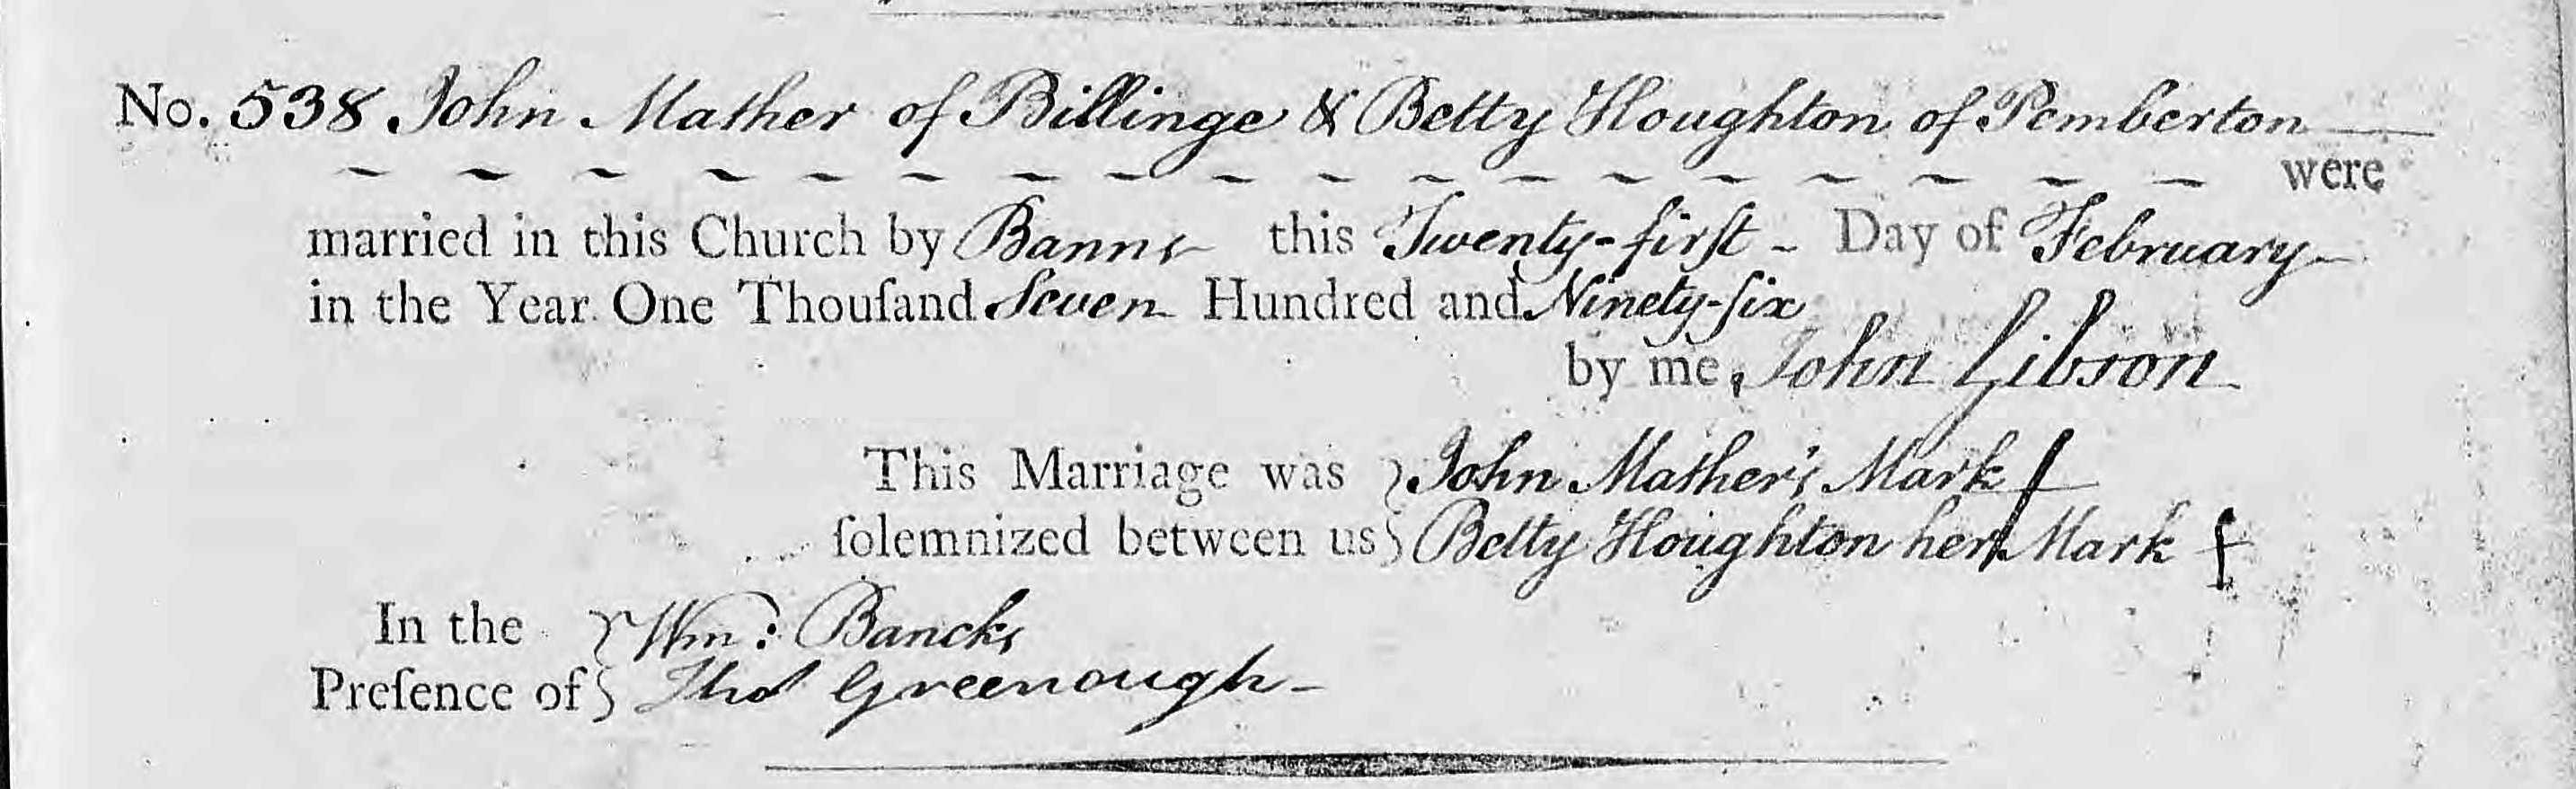 No. 538 John Mather of Billinge & Betty Houghton of Pemberton
were
married in this Church by Banns this Twenty-first Day of February
in the Year One Thouſand Seven Hundred and Ninety-ſix
by me, John Gibson
This Marriage was John Mather's Mark
ſolemnized between us Betty Houghton her Mark
In the Wm: Bancks
Preſence of Thos Greenough